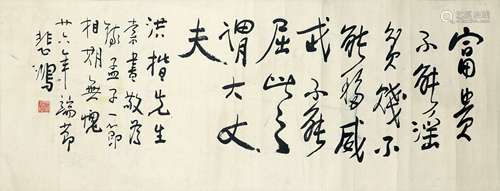 富贵
不能淫
贫贱不
能移威
武不能
屈此之
谓大丈
夫
洪楷先生
索书敬为
录孟子一节
相期无愧
廿六年端节
悲鸿